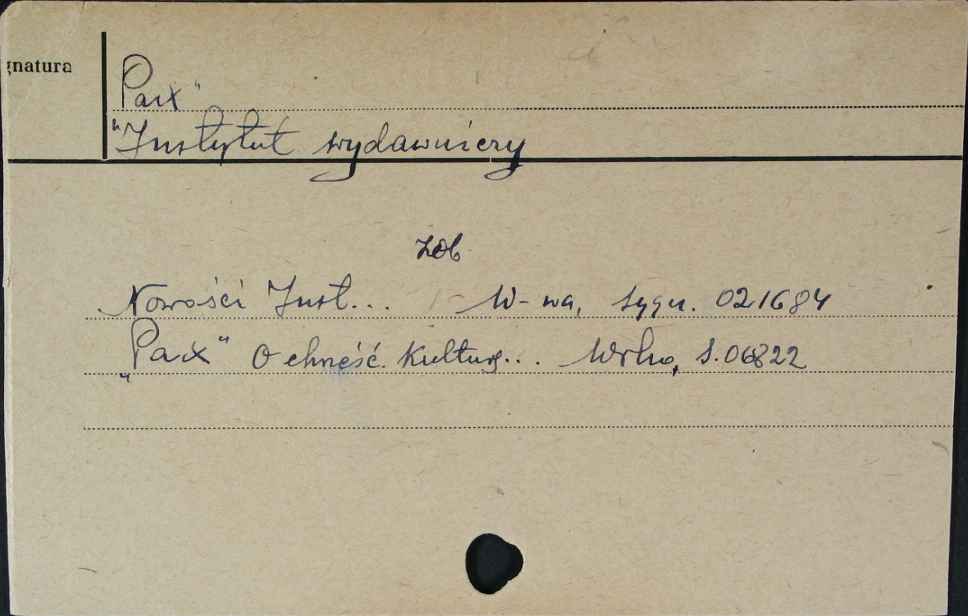 gnatura
Pax"
"Instytut wydawniczy
zob
Nowości Inst... W-wa, sygn. 021684
"Pax" O chrześć. Kulturę... Wrkw, S. 06822